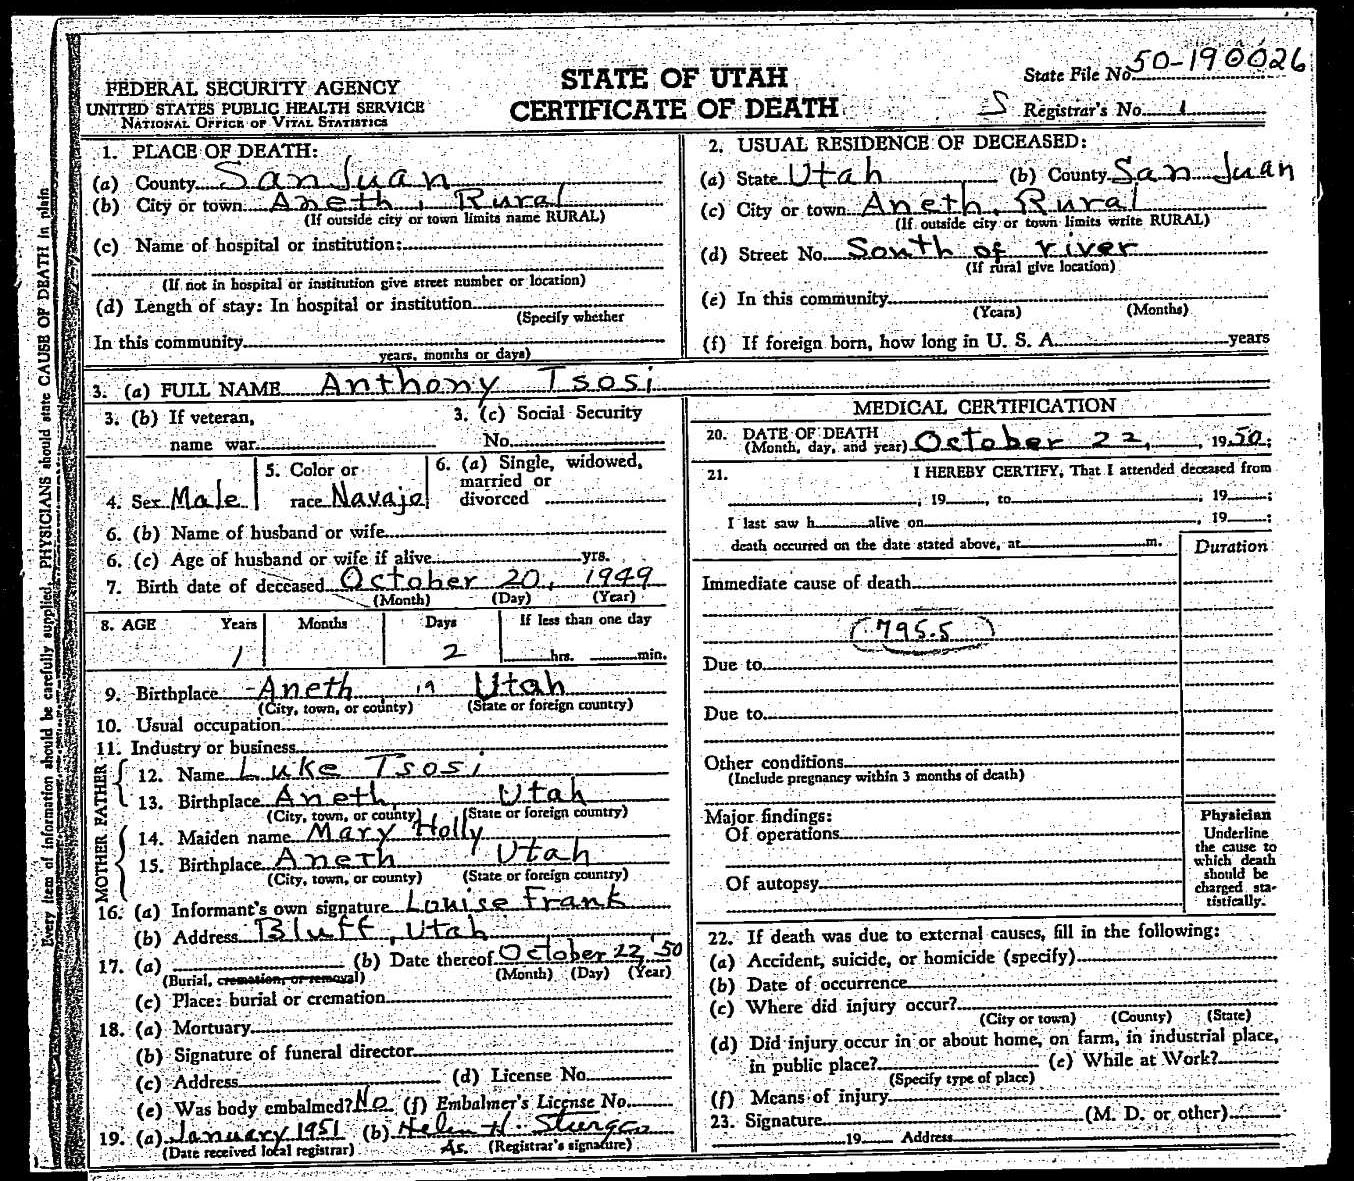 FEDERAL SECURITY AGENCY
UNITED STATES PUBLIC HEALTH SERVICE
NATIONAL OFFICE OF VITAL STATISTICS
STATE OF UTAH
CERTIFICATE OF DEATH
State File No. 50-190026
S Registrar's No. 1
1. PLACE OF DEATH:
(a) County San Juan
(b) City or town Aneth, Rural
(If outside city or town limits name RURAL)
(c) Name of hospital or institution:
(If not in hospital or institution give street number or location)
(d) Length of stay: In hospital or institution
(Specify whether
In this community
years, months or days)
2. USUAL RESIDENCE OF DECEASED:
(a) State Utah (b) County San Juan
(c) City or town Aneth, Rural
(If outside city or town limits write RURAL)
(d) Street No. South of river
(If rural give location)
(e) In this community
(Years) (Months)
(f) If foreign born, how long in U. S. A. years
3. (a) FULL NAME Anthony Tsosi
3. (b) If veteran,
name war
3. (c) Social Security
No.
4. Sex Male
5. Color or
race Navajo
6. (a) Single, widowed,
married or
divorced
6. (b) Name of husband or wife
6. (c) Age of husband or wife if alive yrs.
7. Birth date of deceased October 20, 1949
(Month) (Day) (Year)
8. AGE Years Months Days If less than one day
1 2 hrs. min.
9. Birthplace Aneth, Utah
(City, town, or county) (State or foreign country)
10. Usual occupation
11. Industry or business
FATHER
12. Name Luke Tsosi
13. Birthplace Aneth, Utah
(City, town, or county) (State or foreign country)
MOTHER
14. Maiden name Mary Holly
15. Birthplace Aneth Utah
(City, town, or county) (State or foreign country)
16. (a) Informant's own signature Louise Frank
(b) Address Bluff, Utah
17. (a) (b) Date thereof October 22, '50
(Burial, cremation, or removal) (Month) (Day) (Year)
(c) Place: burial or cremation
18. (a) Mortuary
(b) Signature of funeral director
(c) Address (d) License No.
(e) Was body embalmed? No (f) Embalmer's License No.
19. (a) January 1951 (b) Helen H. Sturges
(Date received local registrar) As. (Registrar's signature)
MEDICAL CERTIFICATION
20. DATE OF DEATH
(Month, day, and year) October 22, 1950;
21. I HEREBY CERTIFY, That I attended deceased from
, 19 , to , 19 ;
I last saw h alive on , 19 ;
death occurred on the date stated above, at m.
Duration
Immediate cause of death
(795.5)
Due to
Due to
Other conditions
(Include pregnancy within 3 months of death)
Major findings:
Of operations
Of autopsy
Physician
Underline
the cause to
which death
should be
charged sta-
tistically.
22. If death was due to external causes, fill in the following:
(a) Accident, suicide, or homicide (specify)
(b) Date of occurrence
(c) Where did injury occur?
(City or town) (County) (State)
(d) Did injury occur in or about home, on farm, in industrial place,
in public place? (e) While at Work?
(Specify type of place)
(f) Means of injury
23. Signature (M. D. or other)
19 Address
Every item of information should be carefully supplied. PHYSICIANS should state CAUSE OF DEATH in plain